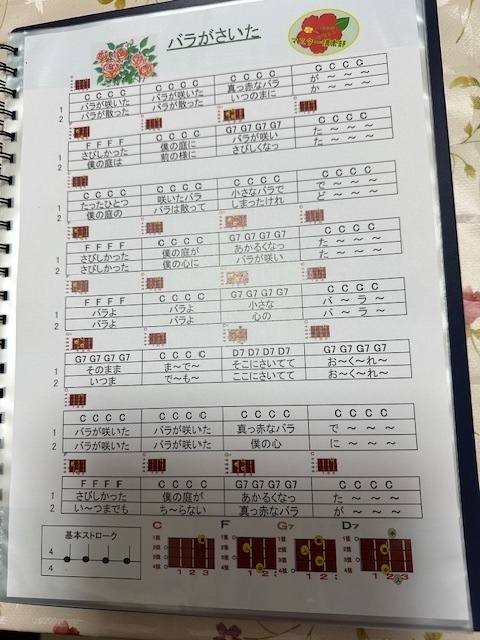 バラがさいた
C C C C C C C C C C C C C C C C
1 バラが咲いた バラが咲いた 真っ赤なバラ が ～ ～ ～
2 バラが散った バラが散った いつのまに か ～ ～ ～
F F F F C C C C G7 G7 G7 G7 C C C C
1 さびしかった 僕の庭に バラが咲い た ～ ～ ～
2 僕の庭は 前の様に さびしくなっ た ～ ～ ～
C C C C C C C C C C C C C C C C
1 たったひとつ 咲いたバラ 小さなバラで で ～ ～ ～
2 僕の庭の バラは散って しまったけれ ど ～ ～ ～
F F F F C C C C G7 G7 G7 G7 C C C C
1 さびしかった 僕の庭が あかるくなっ た ～ ～ ～
2 さびしかった 僕の心に バラが咲い た ～ ～ ～
F F F F C C C C G7 G7 G7 G7 C C C C
1 バラよ バラよ 小さな バ ～ ラ ～
2 バラよ バラよ 心の バ ～ ラ ～
G7 G7 G7 G7 C C C C D7 D7 D7 D7 G7 G7 G7 G7
1 そのまま ま～で～ そこにさいてて お～く～れ～
2 いつま で～も～ ここにさいてて お～く～れ～
C C C C C C C C C C C C C C C C
1 バラが咲いた バラが咲いた 真っ赤なバラ で ～ ～ ～
2 バラが咲いた バラが咲いた 僕の心 に ～ ～ ～
F F F F C C C C G7 G7 G7 G7 C C C C
1 さびしかった 僕の庭が あかるくなっ た ～ ～ ～
2 い～つまでも ち～らない 真っ赤なバラ が ～ ～ ～
基本ストローク
4
4
C F G7 D7
1弦 1弦 1弦 1弦
2弦 2弦 2弦 2弦
3弦 3弦 3弦 3弦
4弦 4弦 4弦 4弦
1 2 3 1 2 1 2 1 2 3